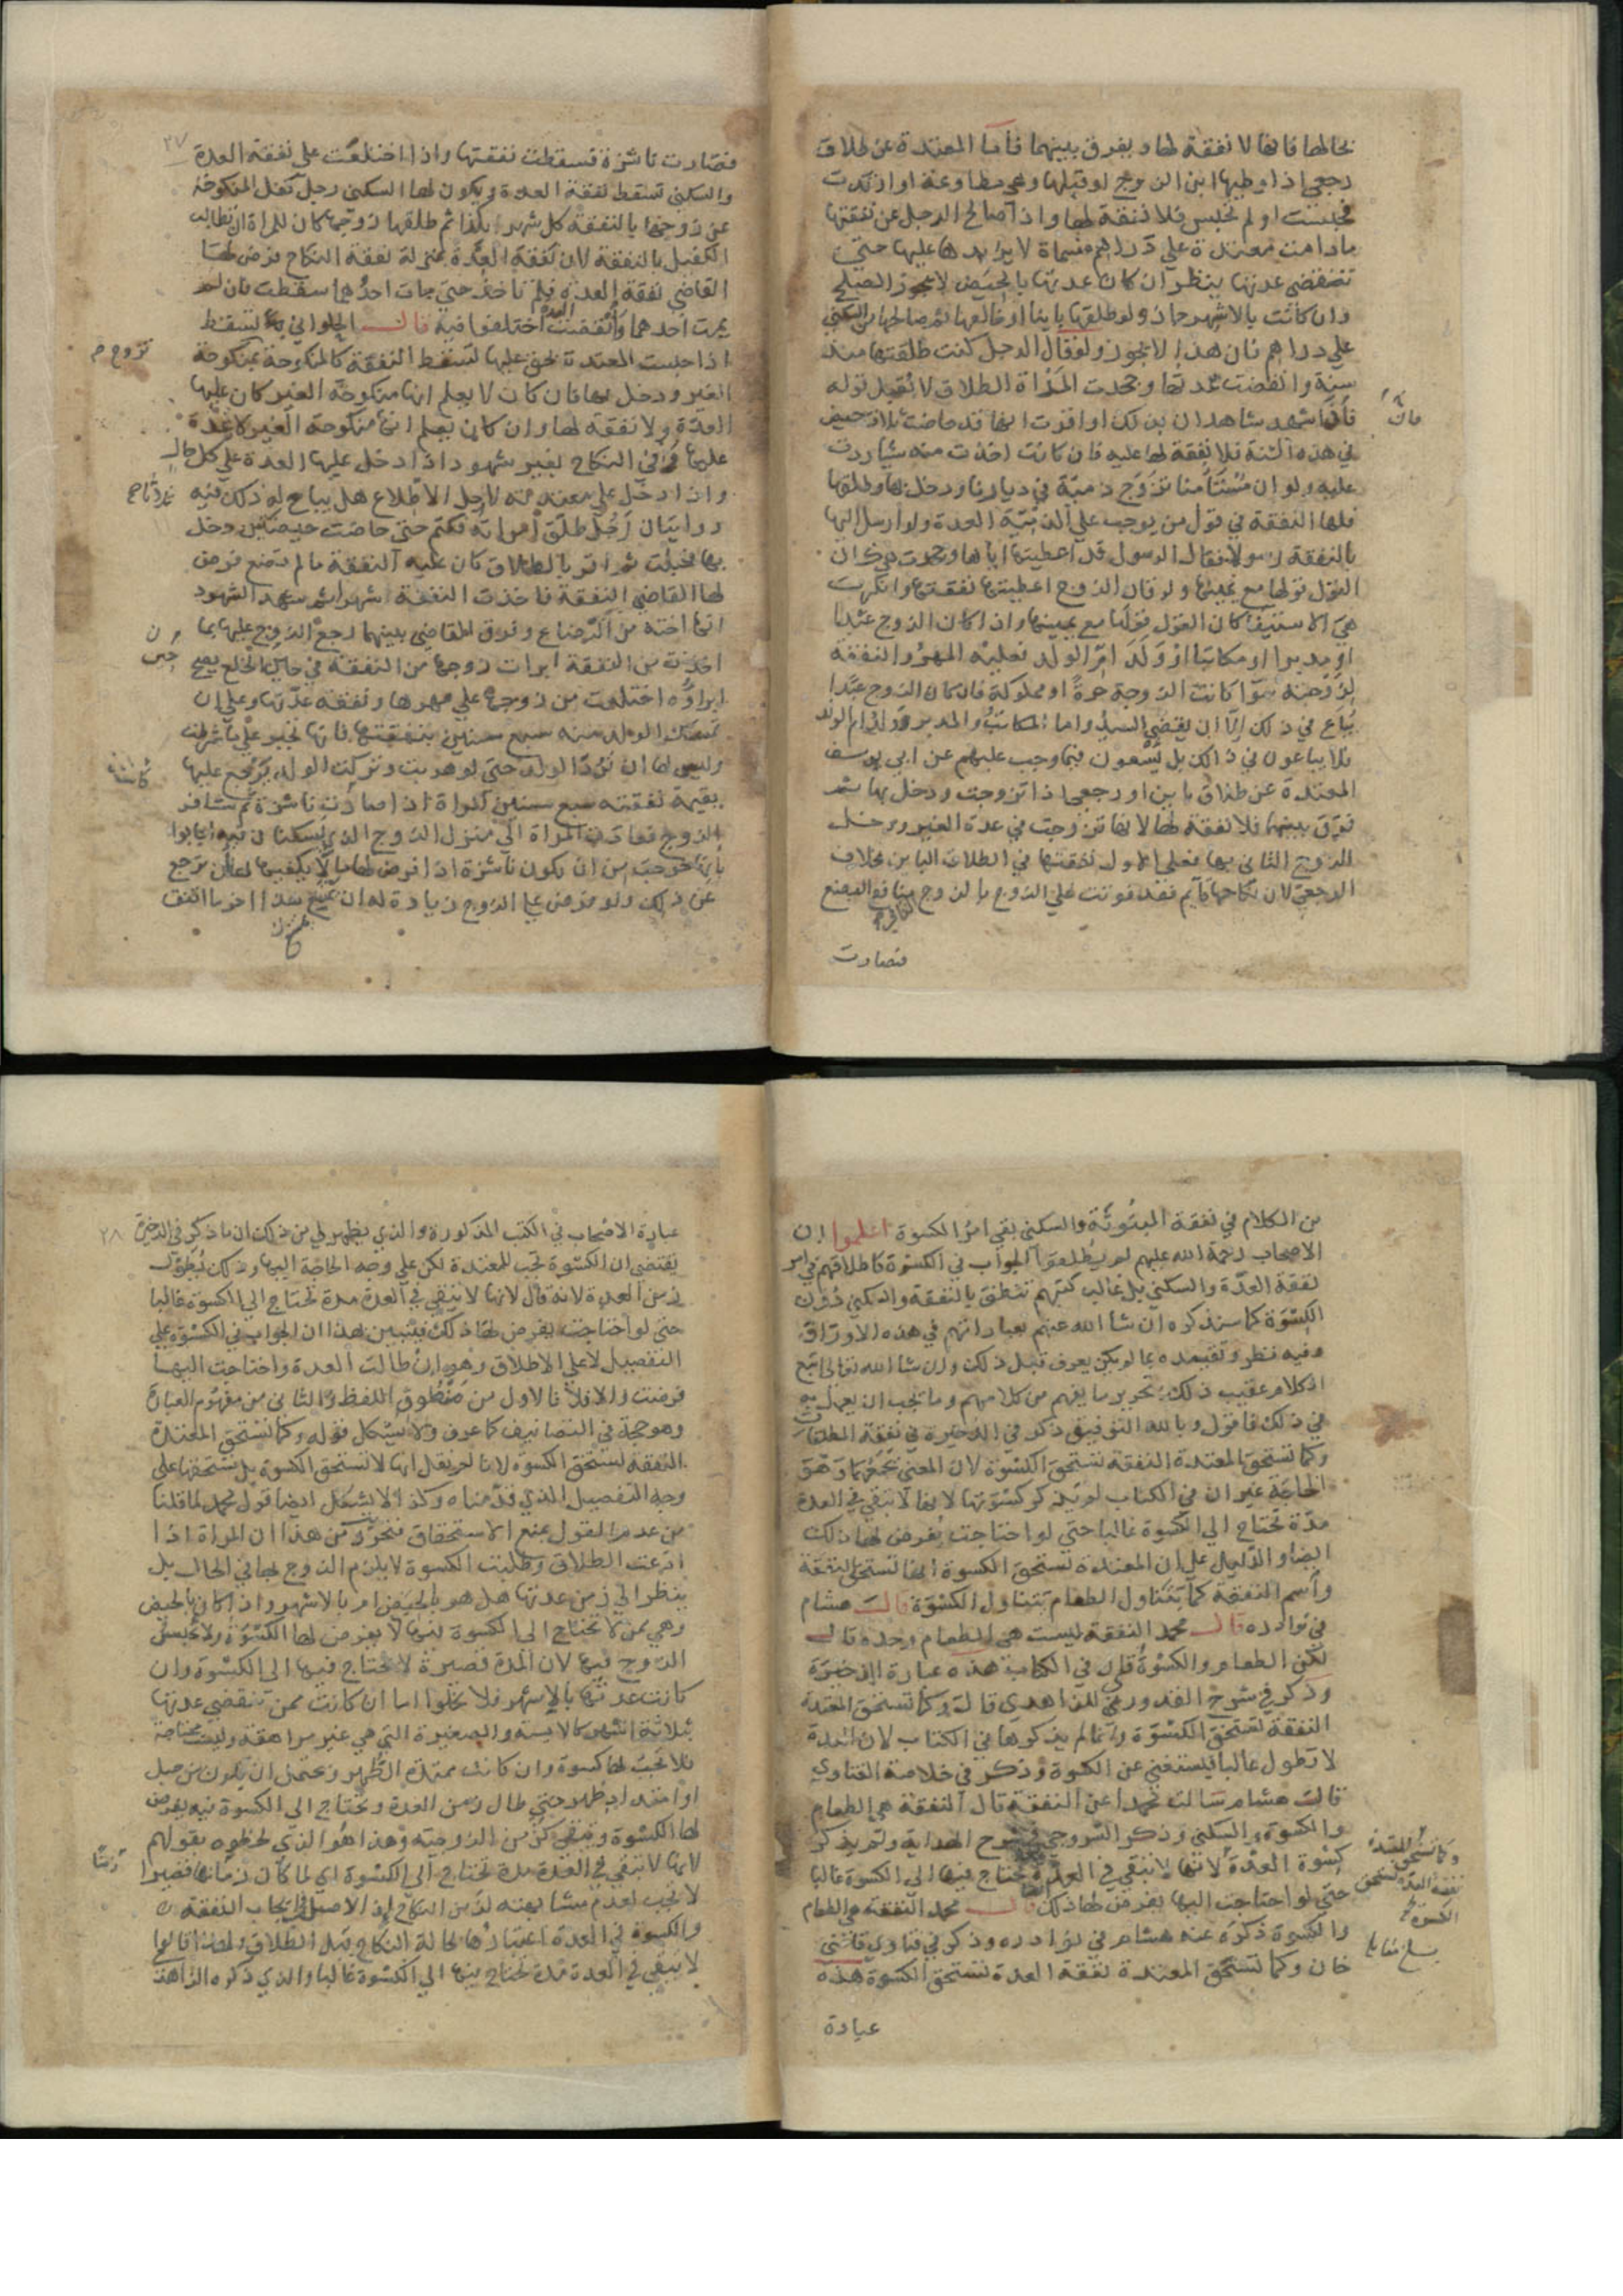 بخالها فانها لا نفقة لها ويفرق بينهما فاما المعتدة عن طلاق
رجعي اذا وطيها ابن الزوج او قبلها وهي مطاوعة او ارتدت
فحبست او لم تحبس فلا نفقة لها واذا صالح الرجل عن نفقتها
مادامت معتدة على دراهم مسماة لا يزايدها عليها حتى
تنقضي عدتها ينظر ان كان عدتها بالحيض لا يجوز الصلح
وان كانت بالاشهر جاز ولو طلقها باينا او خالعها ثم صالحها من السكنى
على دراهم فان هذا لا يجوز ولو قال الرجل كنت طلقتها منذ
سنة وانقضت عدتها وجحدت المراة الطلاق لا نقبل قوله
فان شهد شاهدان بذلك او اقرت انها قد حاضت ثلاث حيض
في هذه السنة فلا نفقة لها عليه فان كانت اخذت منه شيا ردت
عليه ولو ان مستامنا تزوج ذمية في ديارنا ودخل بها وطلقها
فلها النفقة في قول من يوجب على الذمية العدة ولو ارسل اليها
بالنفقة رسولا فقال الرسول قد اعطيتها اياها وجحدت هي ذلك
القول قولها مع يمينها ولو قال الزوج اعطيتها نفقتها وانكرت
هي الاستيفا كان القول قولها مع يمينها واذا كان الزوج عبدا
او مدبرا او مكاتبا او ولد ام الولد فعليه المهر والنفقة
لزوجته سوا كانت الزوجة حرة او مملوكة فان كان الزوج عبدا
يباع في ذلك الا ان يقضي السيد واما المكاتب والمدبر وولد ام الولد
فلا يباعون في ذلك بل يسعون فيما وجب عليهم عن ابي يوسف
المعتدة عن طلاق باين او رجعي اذا تزوجت ودخل بها ثم
فرق بينهما فلا نفقة لها لانها تزوجت في عدة الغير ودخل
الزوج الثاني بها فعلى الاول نفقتها في الطلاق الباين بخلاف
الرجعي لان نكاحها قايم فقد فوتت على الزوج بالزوج منافع البضع
فصارت
٢٧
فصارت ناشزة فسقطت نفقتها واذا اختلعت على نفقة العدة
والسكنى تسقط نفقة العدة ويكون لها السكنى رجل تكفل المنكوحة
عن زوجها بالنفقة كل شهر بكذا ثم طلقها زوجها كان للمراة ان تطالب
الكفيل بالنفقة لان نفقة العدة بمنزلة نفقة النكاح فرض لها
القاضي نفقة العدة فلم تاخذ حتى مات احدهما سقطت فان لم
يمت احدهما وانقضت العدة اختلفوا فيه قال الحلواني تسقط
اذا حبست المعتدة بحق عليها تسقط النفقة كالمنكوحة تزوج م بمنكوحة
الغير ودخل بها فان كان لا يعلم انها منكوحة الغير كان عليها
العدة ولا نفقة لها وان كان يعلم انها منكوحة الغير لا عدة
عليها وفي النكاح بغير شهود اذا دخل عليها العدة على كل حال
واذا دخل على معتدته لاجل الاطلاع هل يباح له ذلك فيه
روايتان رجل طلق امراته فكتم حتى حاضت حيضتين ودخل
بها فحبلت ثم اقر بالطلاق كان عليه النفقة ما لم تضع فرض
لها القاضي النفقة فاخذت النفقة اشهرا ثم شهد الشهود
انها اخته من الرضاع وفرق القاضي بينهما رجع الزوج عليها بما
اخذت من النفقة ابرات زوجها من النفقة في الخلع يصح
ابراؤه اختلعت من زوجها على مهرها ونفقة عدتها وعلى ان
تمسك الولد منه سبع سنين بنفقتها فانها تجبر على ما شرطت
وليس لها ان ترد الولد حتى لو هربت وتركت الولد يرجع عليها
بقيمة نفقته سبع سنين المراة اذا صارت ناشزة ثم سافر
الزوج فعادت المراة الى منزل الزوج الذي يسكنان فيه اجابوا
بانها خرجت من ان تكون ناشزة اذا فرض لها ما لا يكفيها لها ان ترجع
عن ذلك ولو فرض على الزوج زيادة له ان يمتنع هذا اخر ما اتفق
من الكلام في نفقة المبتوتة والسكنى بقي امر الكسوة اعلموا ان
الاصحاب رحمة الله عليهم لم يطلقوا الجواب في الكسوة كاطلاقهم في امر
نفقة العدة والسكنى بل غالب كتبهم تنطق بالنفقة والسكنى دون
الكسوة كما سنذكره ان شا الله عنهم بعباراتهم في هذه الاوراق
وفيه نظر وتقييده بما لم يكن يعرف قبل ذلك وان شا الله تعالى اتبع
الكلام عقيب ذلك بتحرير ما يفهم من كلامهم وما يجب ان يعمل به
في ذلك فاقول وبالله التوفيق ذكر في الذخيرة في نفقة المطلقات
وكما تستحق المعتدة النفقة تستحق الكسوة لان المعنى يجمعهما وهو
الحاجة غير ان في الكتاب لم يذكر كسوتها لانها لا تبقى في العدة
مدة تحتاج الى الكسوة غالبا حتى لو احتاجت يفرض لها ذلك
ايضا والدليل على ان المعتدة تستحق الكسوة انها تستحق النفقة
واسم النفقة كما يتناول الطعام يتناول الكسوة قال هشام
في نوادره قال محمد النفقة ليست هي الطعام وحده قال
لكن الطعام والكسوة قلت في الكتاب هذه عبارة الذخيرة
وذكر في شرح القدوري للزاهدي قال وكما تستحق المعتدة
النفقة تستحق الكسوة وانما لم يذكرها في الكتاب لان العدة
لا تطول غالبا فيستغنى عن الكسوة وذكر في خلاصة الفتاوي
قالت هشام سالت محمدا عن النفقة قال النفقة هي الطعام
والكسوة والسكنى وذكر السروجي في شرح الهداية ولم يذكر
كسوة العدة لانها لا تبقى في العدة تحتاج فيها الى الكسوة غالبا
حتى لو احتاجت اليها يفرض لها ذلك قال محمد النفقة هي الطعام
والكسوة ذكره عنه هشام في نوادره وذكر في فتاوي قاضي
خان وكما تستحق المعتدة نفقة العدة تستحق الكسوة هذه
وكما تستحق المعتدة
نفقة العدة تستحق
الكسوة
عبارة
٢٨
عبارة الاصحاب في الكتب المذكورة والذي يظهر لي من ذلك ان ما ذكر في الذخيرة
يقتضي ان الكسوة تجب للمعتدة لكن على وجه الحاجة اليها وذلك بطول
زمن العدة لانه قال لانها لا تبقى في العدة مدة تحتاج الى الكسوة غالبا
حتى لو احتاجت يفرض لها ذلك فتبين بهذا ان الجواب في الكسوة على
التفصيل لا على الاطلاق وهو ان طالت العدة واحتاجت اليها
فرضت والا فلا فالاول من منطوق اللفظ والثاني من مفهوم العبارة
وهو حجة في التصانيف كما عرف ولا يشكل قوله وكما تستحق المعتدة
النفقة تستحق الكسوة لانا لم نقل انها لا تستحق الكسوة بل تستحقها على
وجه التفصيل الذي قدمناه وكذا لا يشكل ايضا قول محمد لما قلنا
من عدم القول بمنع الاستحقاق فتحرر من هذا ان المراة اذا
ادعت الطلاق وطلبت الكسوة لا يلزم الزوج لها في الحال بل
ينظر الى زمن عدتها هل هو بالحيض ام بالاشهر واذا كان بالحيض
وهي ممن لا تحتاج الى الكسوة فيها لا يفرض لها الكسوة ولا يحبس
الزوج فيها لان المدة قصيرة لا تحتاج فيها الى الكسوة وان
كانت عدتها بالاشهر فلا يخلوا اما ان كانت ممن تنقضي عدتها
بثلاثة اشهر كالايسة والصغيرة التي هي غير مراهقة وليست محتاجة
فلا تجب لها كسوة وان كانت ممتدة الطهر ويحتمل ان يكون من حبل
او امتداد طهر حتى طال زمن العدة وتحتاج الى الكسوة فيه يفرض
لها الكسوة وتبقى كزمن الزوجية وهذا هو الذي لحظوه بقولهم
لانها لا تبقى في العدة مدة تحتاج الى الكسوة اي لما كان زمانها قصيرا
لا تجب لعدم مشابهته لزمن النكاح اذ الاصل في ايجاب النفقة
والكسوة في العدة اعتبارها بحالة النكاح قبل الطلاق ولهذا قالوا
لا تبقى في العدة مدة تحتاج فيها الى الكسوة غالبا والذي ذكره الزاهد